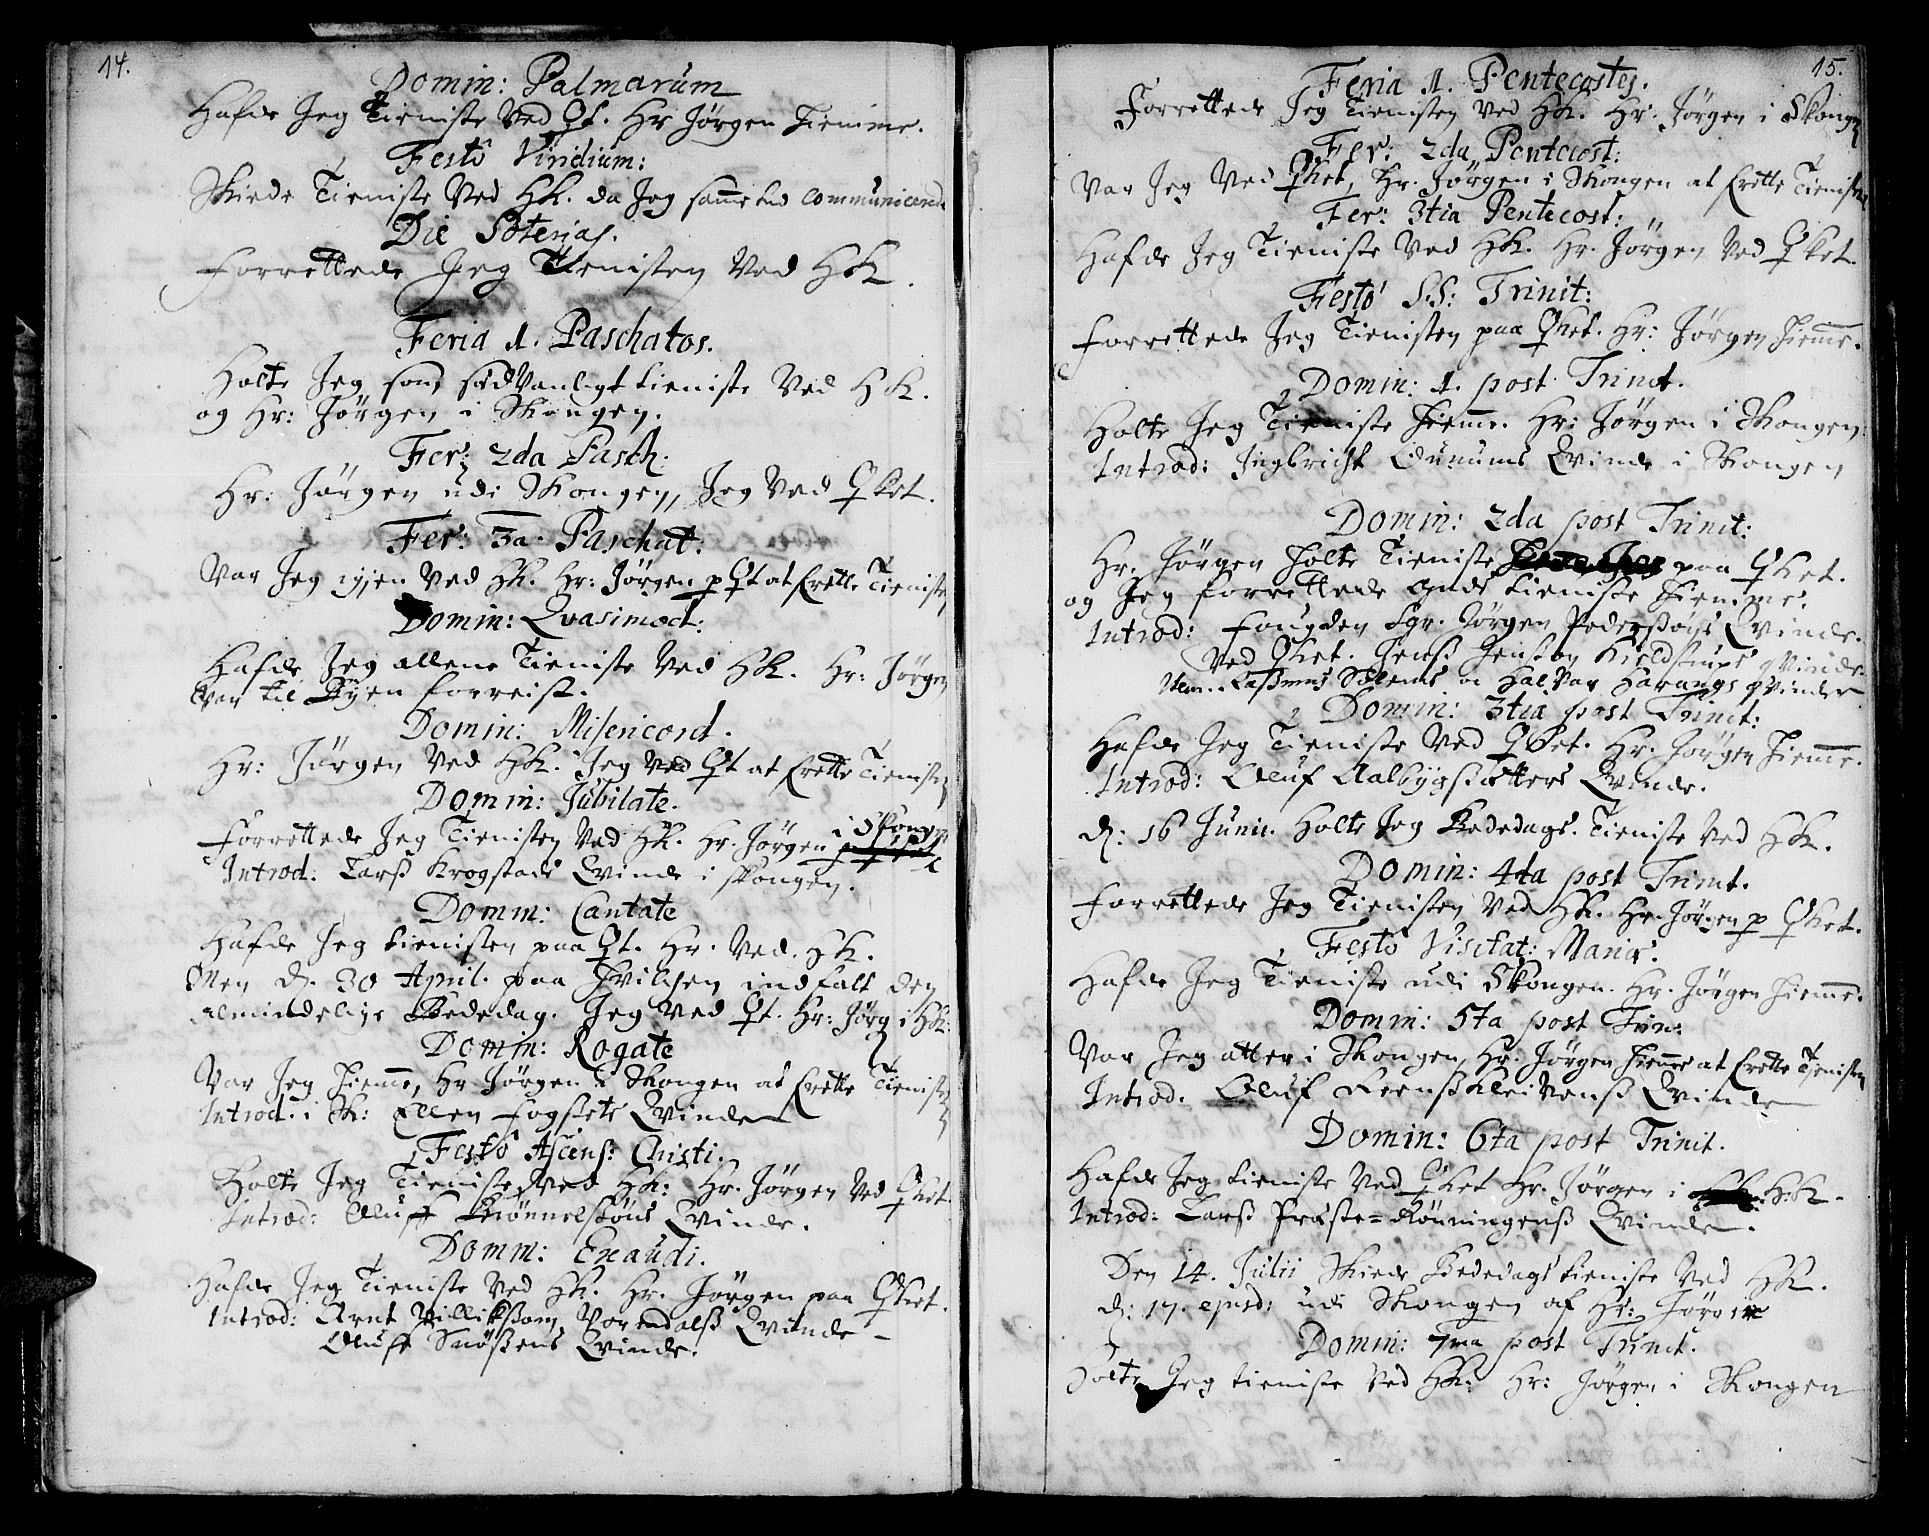 14.
Domin: Palmarum
Hafde Jeg Tieniste Ved Qt. Hr Jörgen hiemme.
Festo Viridium:
Skiede Tieniste Ved HK. da Jeg samme tid communicerede
Die Soterias.
Forrettede Jeg Tienisten Ved HK.
Feria 1. Paschatos.
Holte Jeg som sædvanligt tieniste Ved HK.
og Hr: Jörgen i Skongen.
Fer: 2da Pasch:
Hr: Jörgen udi Skongen, Jeg Ved Qket.
Fer: 3a. Paschat:
Var Jeg igien Ved HK. Hr: Jörgen p Qt at forrette Tienisten
Domin: Qvasimod:
Hafde Jeg allene Tieniste Ved HK. Hr: Jörgen
Var til Byen forreist.
Domin: Misericord.
Hr: Jörgen Ved HK. Jeg Ved Qt at forrette Tienisten
Domin: Jubilate.
Forrettede Jeg Tienisten Ved HK. Hr. Jörgen i Skongen
Introd: Larss Krogstads Qvinde i skongen.
Domin: Cantate
Hafde Jeg tienisten paa Qt. Hr. Ved. HK.
Men d. 30 April. paa hvilchen indfalt den
almindelige Bededag. Jeg Ved Qt. Hr: Jörg i HK.
Domin: Rogate
Var Jeg hiemme, Hr Jörgen i Skongen at forrette Tienisten
Introd. i Sk: Ellen Fogstets Qvinde
Festo Ascens: Christi.
Holte Jeg Tieniste Ved HK: Hr. Jörgen Ved Qket.
Introd: Oluff Qvinde.
Domin: Exaudi.
Hafde Jeg Tieniste Ved HK. Hr. Jörgen paa Qket.
Introd: Arnt Vordalss Qvinde –
Oluff Snössens Qvinde.
15.
Feria 1. Pentecostes.
Forrettede Jeg Tienisten Ved HK. Hr. Jörgen i Skongen
Fer: 2da Pentecost:
Var Jeg Ved Qket, Hr. Jörgen i Skongen at forrette Tienisten
Fer: 3tia Pentecost:
Hafde Jeg Tieniste Ved HK. Hr. Jörgen Ved Qket.
Festo S.S: Trinit:
Forrettede Jeg Tienisten paa Qket. Hr: Jörgen hiemme.
Domin: 1. post Trinit.
Holte Jeg Tieniste hiemme. Hr: Jörgen i Skongen.
Introd: Ingbricht Qvinde i Skongen
Domin: 2da post Trinit:
Hr. Jörgen holte Tieniste paa Qket.
og Jeg forrettede tieniste hiemme.
Introd: Fougden Sgr. Jörgen Pederssöns Qvinde.
Ved Qket. Jenss Qvinde.
Item. Rassmus Solems oc Halvar Harangs qvinder
Domin: 3tia post Trinit:
Hafde Jeg Tieniste Ved Qket. Hr. Jörgen hiemme.
Introd: Oluf Aalbygssætters Qvinde.
d: 16 Junii. Holte Jeg Bededags. Tieniste Ved HK.
Domin: 4ta post Trinit.
Forrettede Jeg Tienisten Ved HK. Hr. Jörgen p Qket.
Festo Visitat: Mariæ.
Hafde Jeg Tieniste udi Skongen. Hr. Jörgen hiemme.
Domin: 5ta post Trin:
Var Jeg atter i Skongen, Hr. Jörgen hiemme at forrette Tienisten
Introd. Oluf Reenssklei Venss Qvinde
Domin: 6ta post Trinit.
Hafde Jeg tieniste Ved Qket Hr. Jörgen i H:K.
Introd: Larss Præste=Rönningenss Qvinde.
Den 14. Julii Skiede Bededags tieniste Ved HK.
d: 17. ejusd: udi Skongen af Hr: Jörgen
Domin: 7ma post Trinit.
Holte Jeg tieniste Ved HK: Hr: Jörgen i Skongen